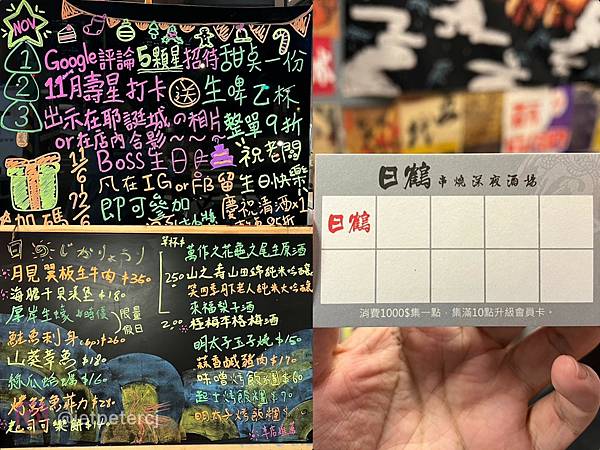 NOV
1 Google評論5顆星招待甜点一份
2 11月壽星打卡 送 生啤乙杯
3 出示在耶誕城の相片整單9折
or在店內合影～～～
11/6 Boss生日 祝老闆
凡在IG or FB留生日快樂
即可參加
慶祝清酒x1
月見翼板生牛肉 $350
海膽干貝漢堡 $180
厚岸生蠔 時價 限量假日
鮭魚刺身 (6pc) $260
山藥章魚 $180
絲瓜蛤蠣 $160
烤鮭魚菲力 $280
起司可樂餅
單杯
萬作之花龜之尾生原酒
250 山之壽山田錦純米吟釀
笑四季月下老人純米大吟釀
來福梨子酒
200 桂梅李格梅酒
明太子玉子燒 $150
蒜香鹹豬肉 $170
味噌烤飯糰 $60
起士烤飯糰 $70
明太子烤飯糰
@latpeterej
日鶴 串燒深夜酒場
日鶴
消費1000$集一點，集滿10點升級會員卡。